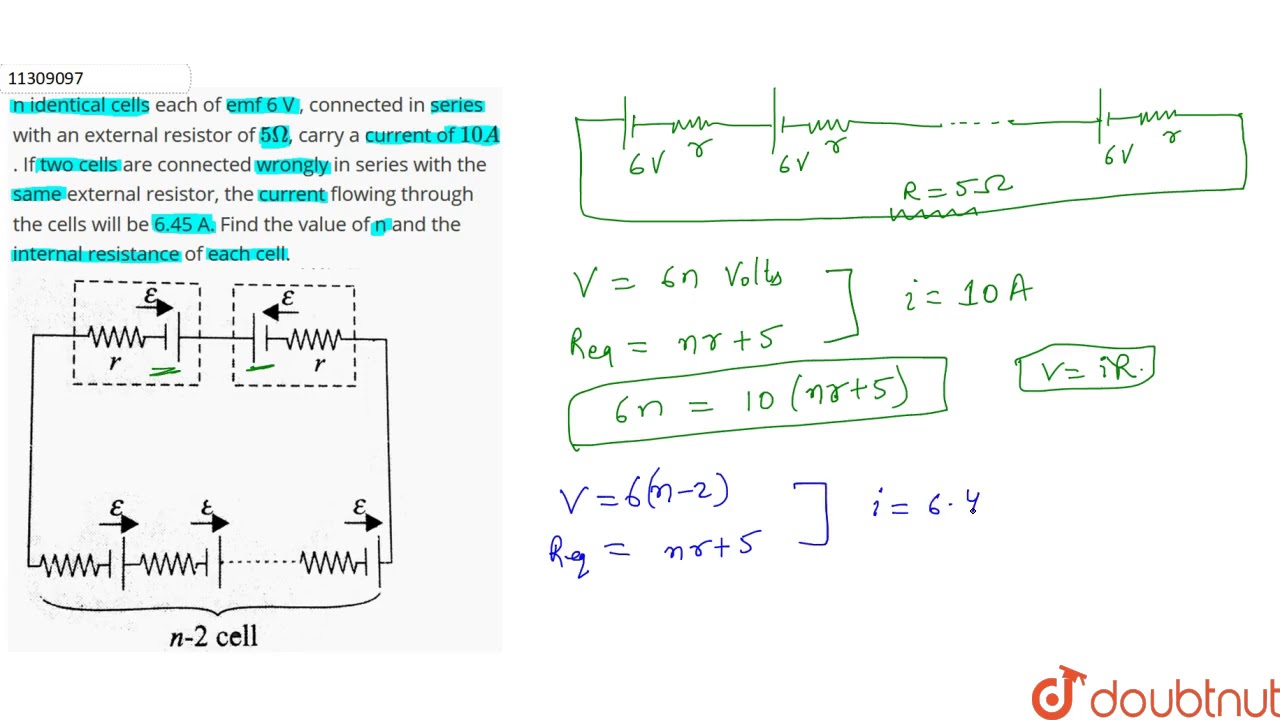 11309097
n identical cells each of emf 6 V , connected in series
with an external resistor of 5Ω, carry a current of 10 A
. If two cells are connected wrongly in series with the
same external resistor, the current flowing through
the cells will be 6.45 A. Find the value of n and the
internal resistance of each cell.
ε ε
r r
ε ε ε
n-2 cell
r r r
6V 6V 6V
R = 5Ω
V = 6n Volts
i = 10 A
Req = nr + 5
V = iR.
6n = 10 (nr+5)
V = 6(n-2)
i = 6.4
Req = nr + 5
doubtnut